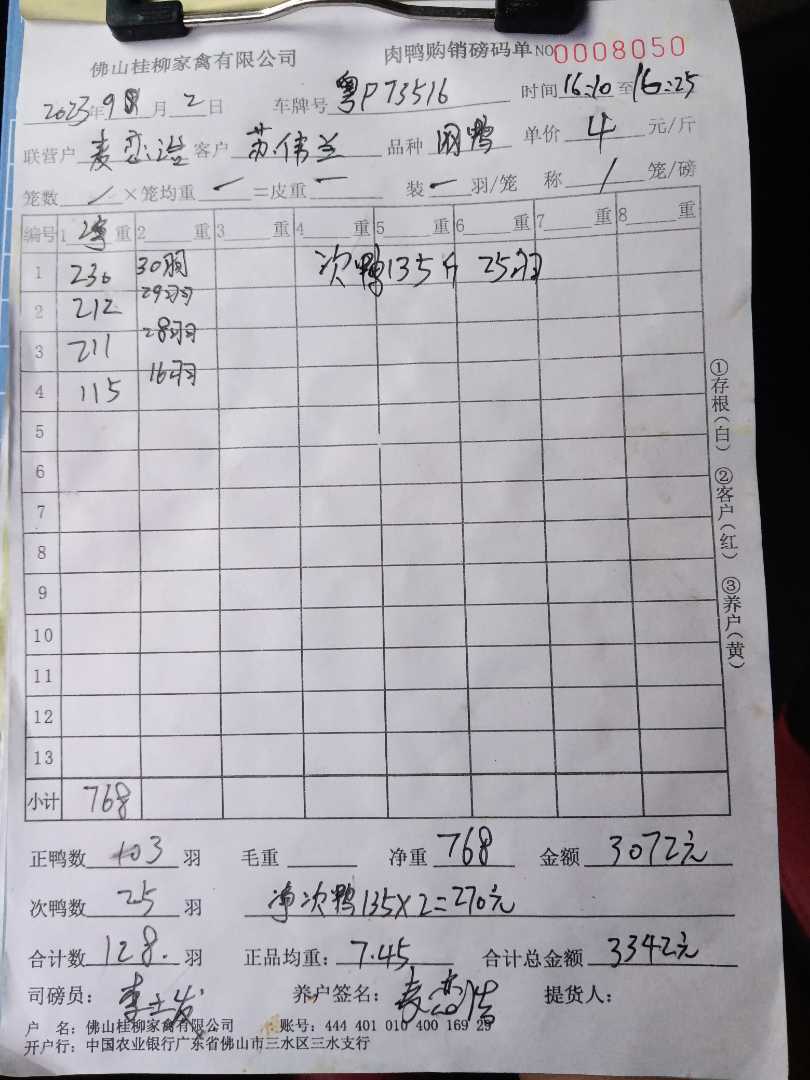 佛山桂柳家禽有限公司 肉鸭购销磅码单 NO 0008050
2023年9月2日 车牌号 粤P73516 时间 16:10 至 16:25
联营户 麦 客户 苏伟兰 品种 鸭 单价 4 元/斤
笼数 / ×笼均重 一 =皮重 一 装 一 羽/笼 称 / 笼/磅
编号 1 净 重 2 重 3 重 4 重 5 重 6 重 7 重 8 重
1 230 30羽 次鸭135斤 25羽
2 212 29羽
3 211 28羽
4 115 16羽
5
6
7
8
9
10
11
12
13
小计 768
正鸭数 103 羽 毛重 净重 768 金额 3072元
次鸭数 25 羽 净次鸭135×2=270元
合计数 128. 羽 正品均重: 7.45 合计总金额 3342元
司磅员: 李 养户签名: 麦 提货人:
户 名: 佛山桂柳家禽有限公司 账号: 444 401 010 400 169 29
开户行: 中国农业银行广东省佛山市三水区三水支行
①存根(白) ②客户(红) ③养户(黄)